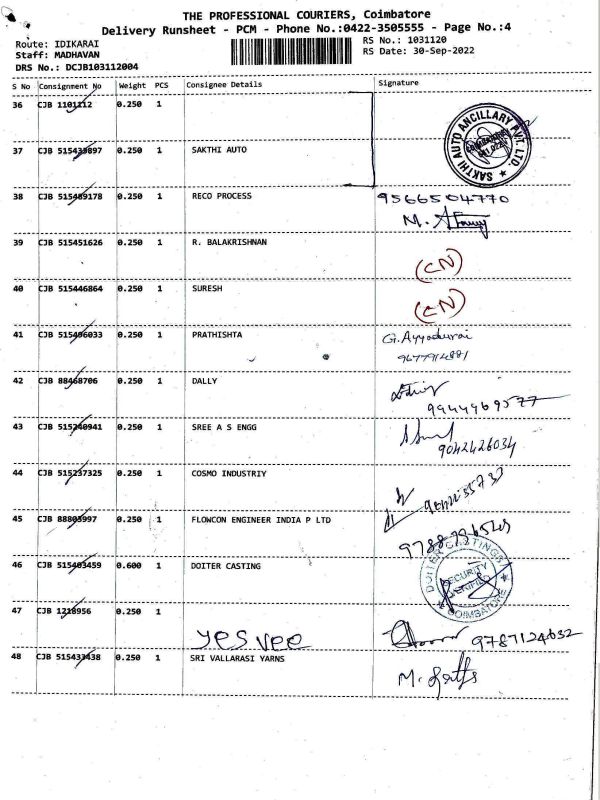 THE PROFESSIONAL COURIERS, Coimbatore
Delivery Runsheet - PCM - Phone No.:0422-3505555 - Page No.:4
Route: IDIKARAI RS No.: 1031120
Staff: MADHAVAN RS Date: 30-Sep-2022
DRS No.: DCJB103112004
S No Consignment No Weight PCS Consignee Details Signature
36 CJB 1101212 0.250 1
SAKTHI AUTO ANCILLARY PVT. LTD.
37 CJB 515439897 0.250 1 SAKTHI AUTO
38 CJB 515489178 0.250 1 RECO PROCESS 9566504770
M.
39 CJB 515451626 0.250 1 R. BALAKRISHNAN
(CN)
40 CJB 515446864 0.250 1 SURESH
(CN)
41 CJB 515496033 0.250 1 PRATHISHTA G. Ayyadurai
9677914881
42 CJB 88468706 0.250 1 DALLY
9944969577
43 CJB 515240941 0.250 1 SREE A S ENGG
9042426034
44 CJB 515237325 0.250 1 COSMO INDUSTRIY
45 CJB 88803997 0.250 1 FLOWCON ENGINEER INDIA P LTD
46 CJB 515403459 0.600 1 DOITER CASTING
DOITER CASTINGS
SECURITY
VERIFIED
COIMBATORE
47 CJB 1218956 0.250 1
yes vee 9787124632
48 CJB 515433438 0.250 1 SRI VALLARASI YARNS
M.